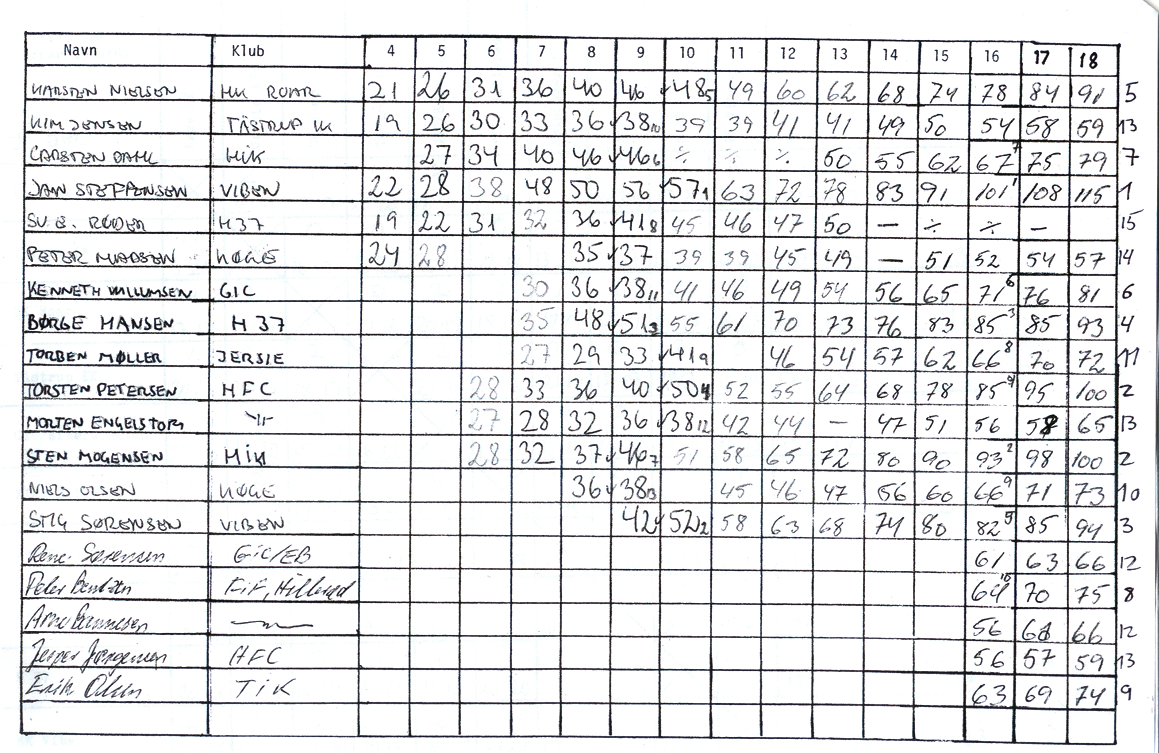 Navn Klub 4 5 6 7 8 9 10 11 12 13 14 15 16 17 18
KARSTEN NIELSEN HK ROAR 21 26 31 36 40 46 √48 5 49 60 62 68 74 78 84 91 5
KIM JENSEN TÅSTRUP IK 19 26 30 33 36 √38 10 39 39 41 41 49 50 54 58 59 13
CARSTEN DAHL HIK 27 34 40 46 √46 6 ÷ ÷ ÷ 50 55 62 67 7 75 79 7
JAN STEFFENSEN VIBEN 22 28 38 48 50 56 √57 1 63 72 78 83 91 101 1 108 115 1
SV.E. RODER H37 19 22 31 32 36 √41 8 45 46 47 50 — ÷ ÷ — 15
PETER MADSEN KØGE 24 28 35 √37 39 39 45 49 — 51 52 54 57 14
KENNETH WILLUMSEN GIC 30 36 √38 11 41 46 49 54 56 65 71 6 76 81 6
BØRGE HANSEN H 37 35 48 √51 3 55 61 70 73 76 83 85 3 85 93 4
TORBEN MØLLER JERSIE 27 29 33 √41 9 46 54 57 62 66 8 70 72 11
TORSTEN PETERSEN HFC 28 33 36 40 √50 4 52 55 64 68 78 85 4 95 100 2
MORTEN ENGELSTOFT –"– 27 28 32 36 √38 12 42 44 — 47 51 56 58 65 13
STEN MOGENSEN HIK 28 32 37 √46 7 51 58 65 72 80 90 93 2 98 100 2
NIELS OLSEN KØGE 36 √38 13 45 46 47 56 60 66 9 71 73 10
STIG SØRENSEN VIBEN 42 √52 2 58 63 68 74 80 82 5 85 94 3
Rene Sørensen GIC/EB 61 63 66 12
Peter FIF, Hillerød 64 10 70 75 8
Arne 56 66 12
Jesper Jørgensen HFC 56 57 59 13
Erik Olsen TIK 63 69 74 9